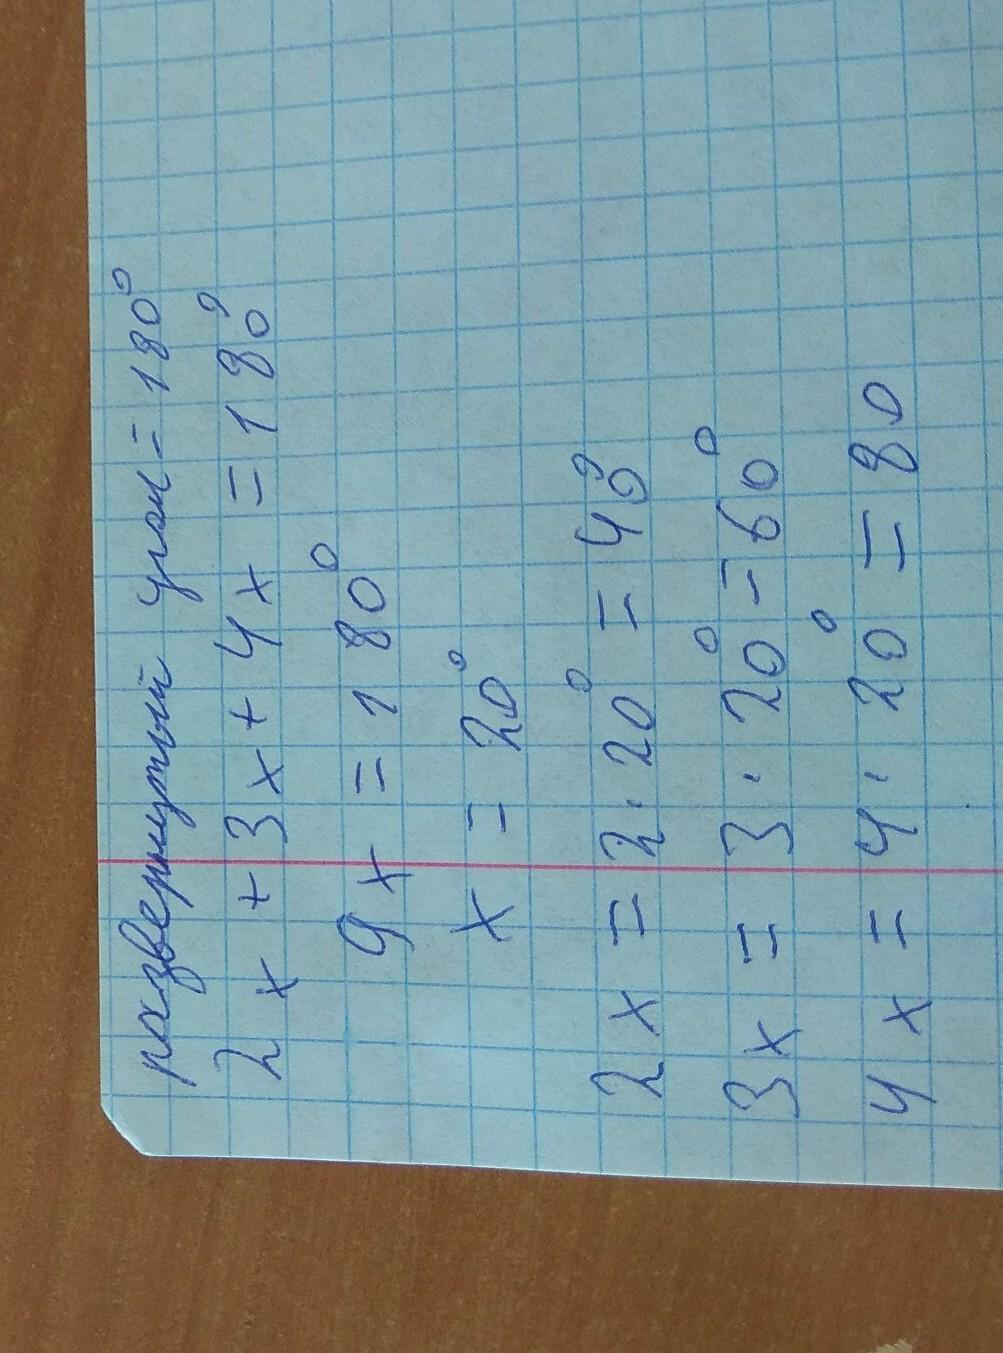 развернутый угол = 180°
2x + 3x + 4x = 180°
9x = 180°
x = 20°
2x = 2 · 20° = 40°
3x = 3 · 20° = 60°
4x = 4 · 20° = 80